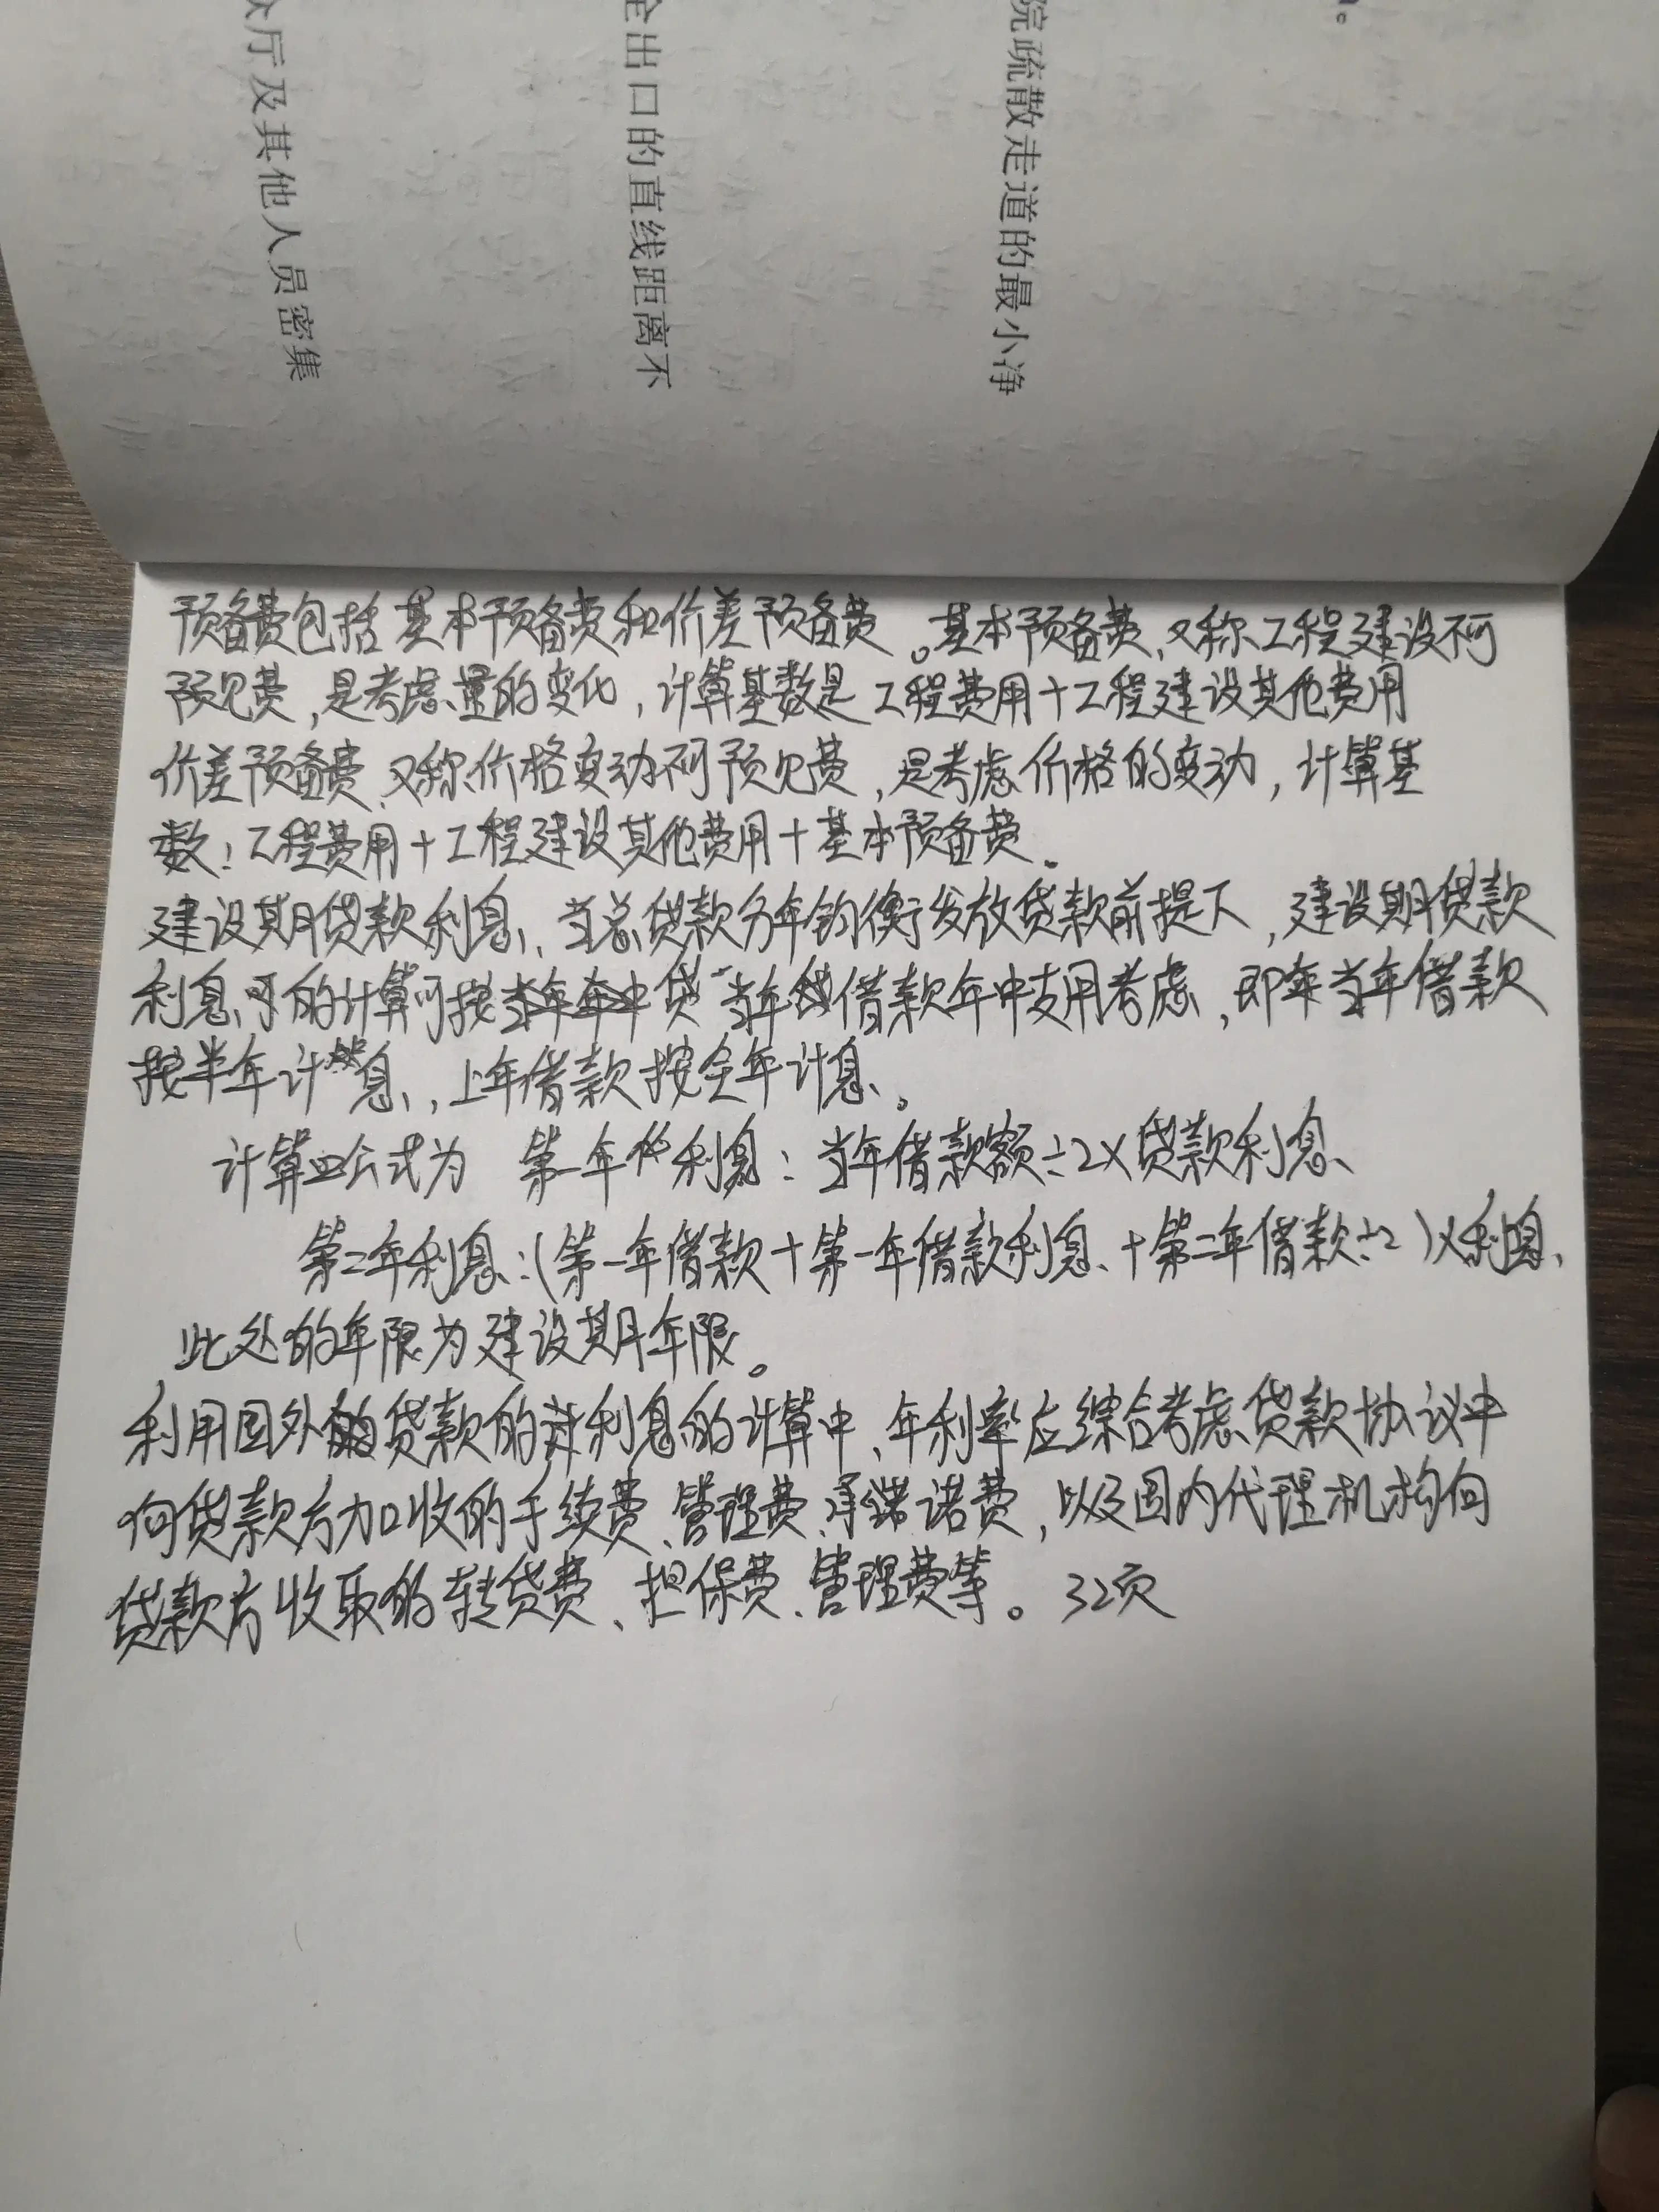 众厅及其他人员密集
全出口的直线距离不
院疏散走道的最小净
预备费包括基本预备费和价差预备费。基本预备费、又称工程建设不可
预见费，是考虑量的变化，计算基数是工程费用+工程建设其他费用
价差预备费、又称价格变动不可预见费，是考虑价格的变动，计算基
数：工程费用+工程建设其他费用+基本预备费。
建设期贷款利息，当总贷款分年均衡发放贷款前提下，建设期贷款
利息的计算可按当年借款年中支用考虑，即当年借款
按半年计息，上年借款按全年计息。
计算公式为 第一年利息：当年借款额÷2×贷款利息
第二年利息：（第一年借款+第一年借款利息+第二年借款÷2）×利息
此处的年限为建设期年限。
利用国外贷款的利息的计算中、年利率应综合考虑贷款协议中
向贷款方加收的手续费、管理费、承诺费，以及国内代理机构向
贷款方收取的转贷费、担保费、管理费等。32页